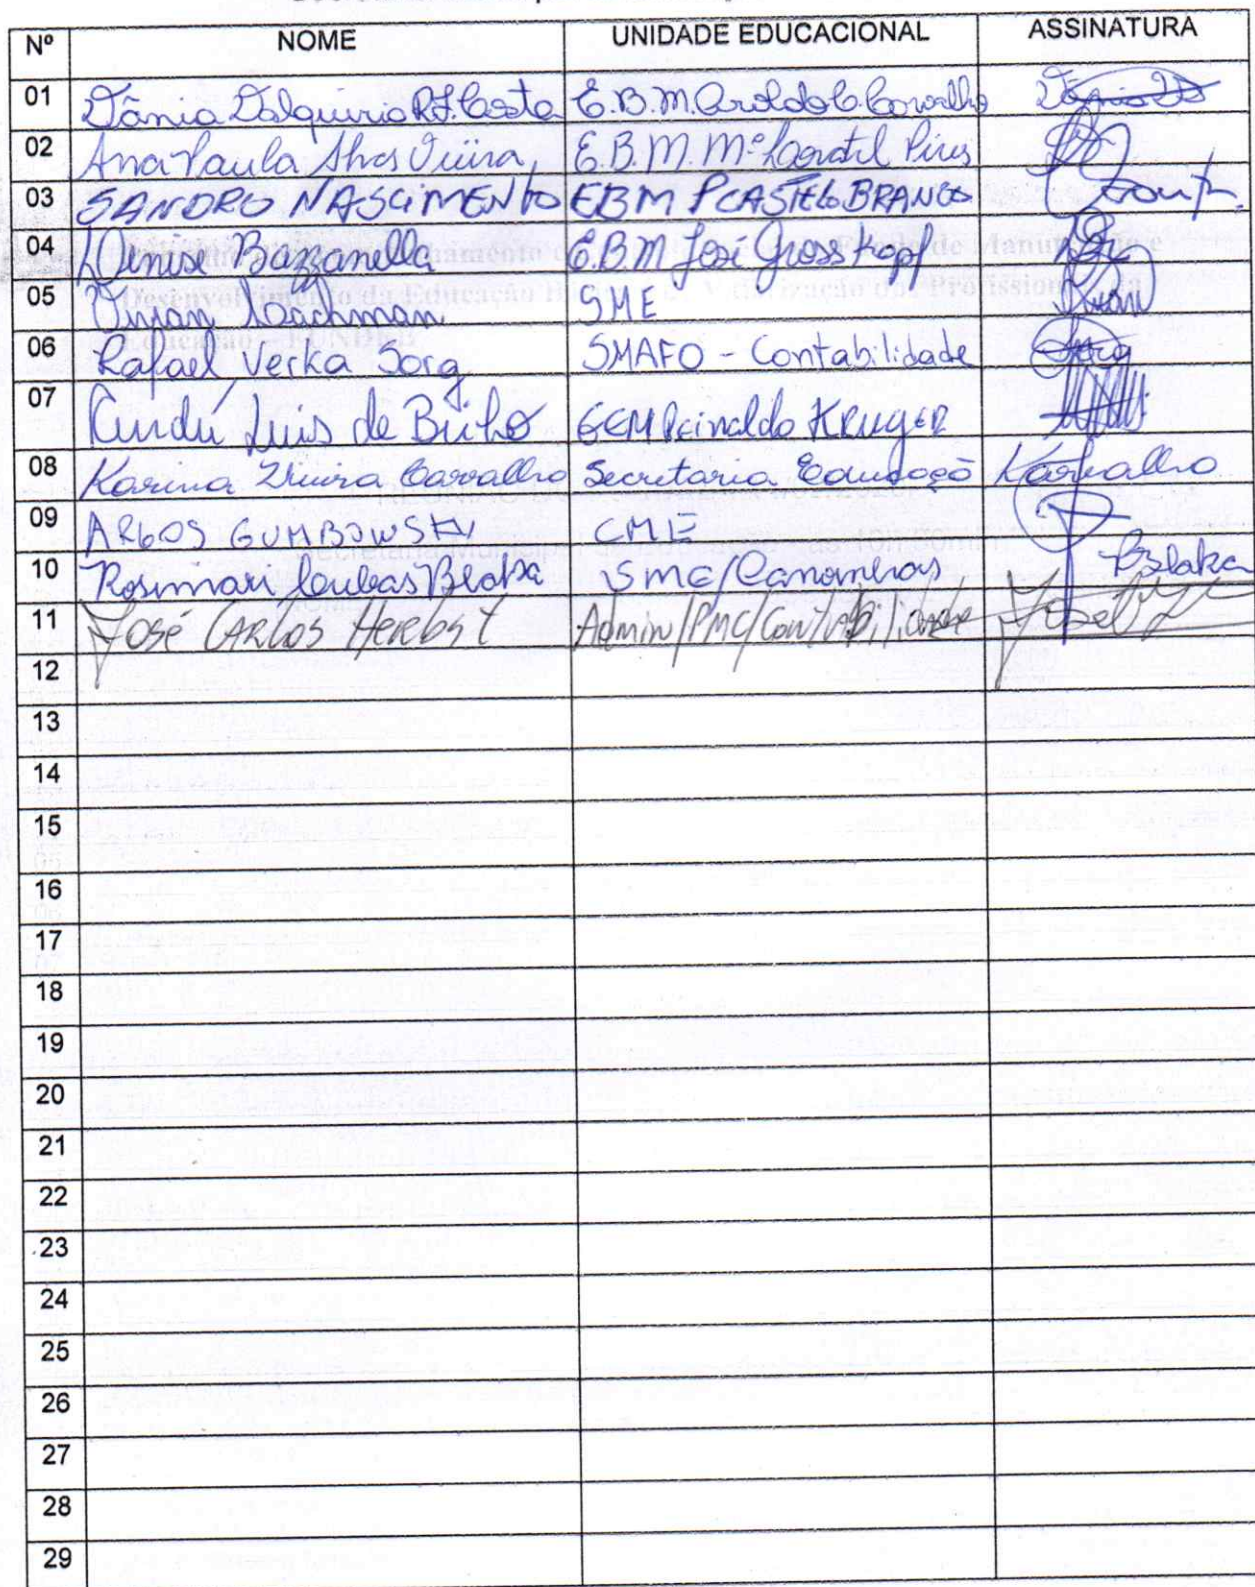 Nº NOME UNIDADE EDUCACIONAL ASSINATURA
01 Tânia Dalquirio R.F. Costa E.B.M. Aroldo C. Carvalho
02 Ana Paula Alves Vieira E.B.M. Mª Pires
03 SANDRO NASCIMENTO EBM P CASTELO BRANCO
04 Denise Bazzanella E.B.M José Grosskopf
05 Vivian Wachman SME
06 Rafael Verka Sorg SMAFO - Contabilidade Sorg
07 Luis de Brito GEM Reinaldo KRUGER
08 Karina Vieira Carvalho Secretaria Educação KCarvalho
09 ARGOS GUMBOWSKY CME
10 Rosimari Cubas Blaka SME/Canoinhas Blaka
11 José CARLOS Herbst Admin/PMC/Contabilidade José
12
13
14
15
16
17
18
19
20
21
22
23
24
25
26
27
28
29